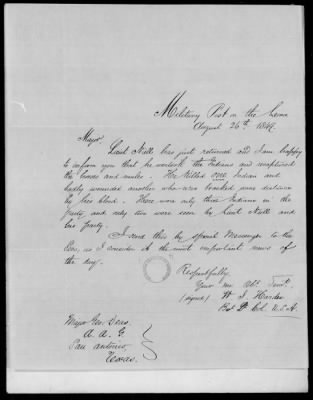 Military Post on the Leona
August 26th 1849.
Major
Lieut Neill has just returned and I am happy
to inform you that he overtook the Indians and recaptured
the horses and mules. He killed one Indian and
badly wounded another who was tracked some distance
by his blood. There were only three Indians in the
party and only two were seen by Lieut Neill and
his party.
I send this by special Messenger to the
Gen, as I consider it the most important news of
the day.
Respectfully
Your mo Obt Servt.
(signed) W. J. Hardee
Bvt Lt Col. U.S.A.
Major Geo. Deas
A. A. G.
San Antonio,
Texas.